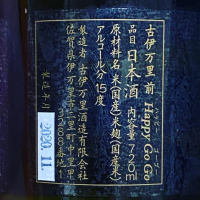 古伊万里 前 Happy Go Go
品目 日本酒 内容量 720ml
原材料名 米(国産) 米麹(国産米)
アルコール分 15度
製造者 古伊万里酒造有限会社
佐賀県伊万里市二里町中里甲
3288番地1
製造年月
2020.11.